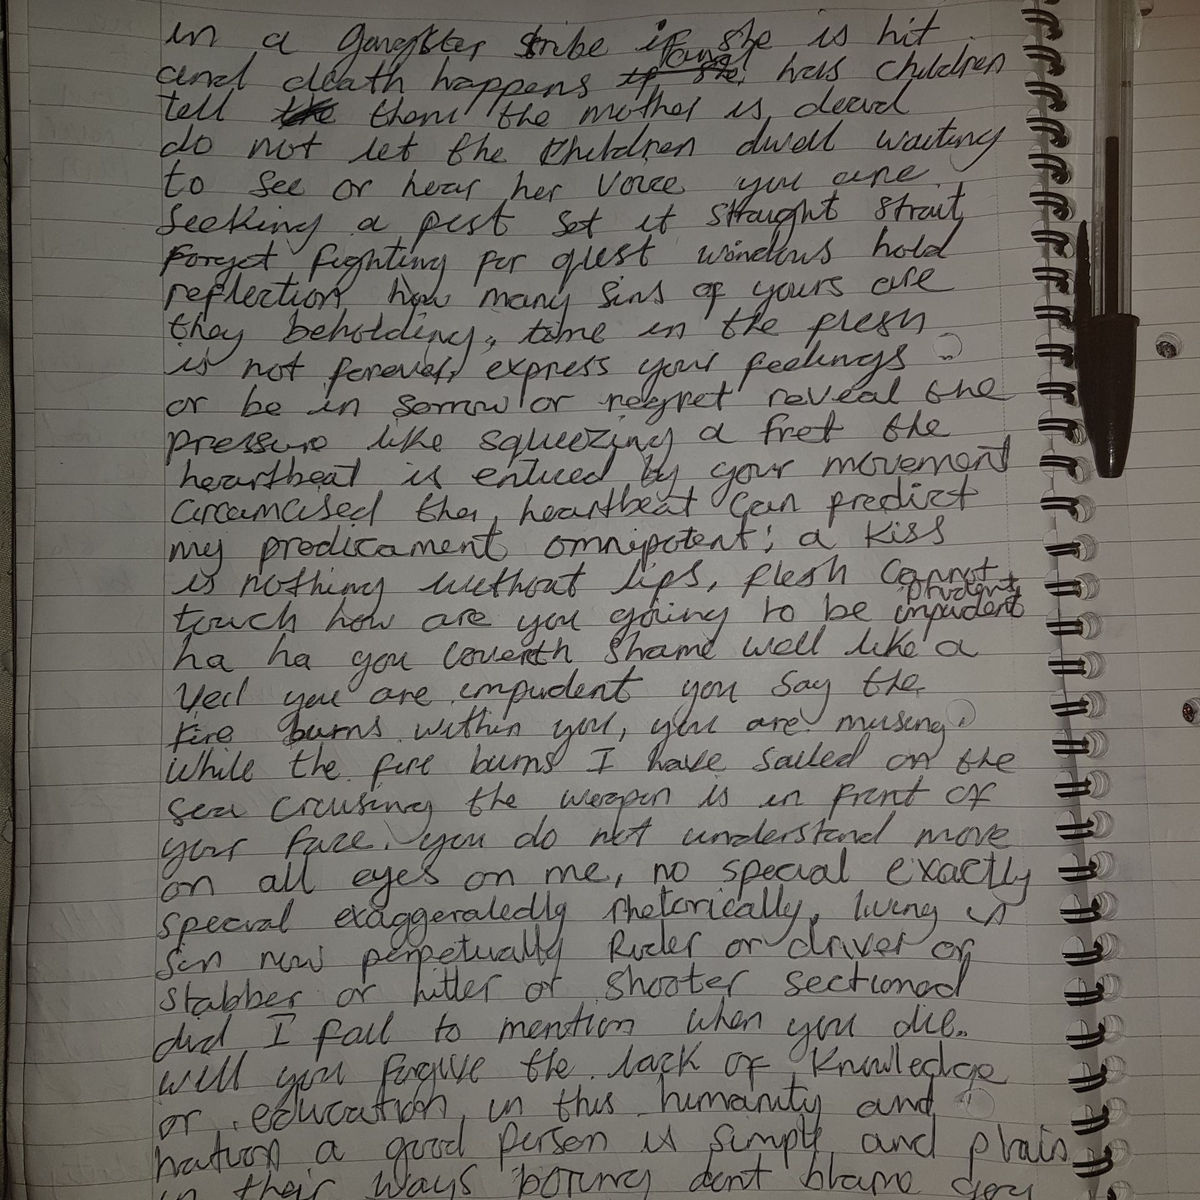 in a gangster tribe if she is hit
and death happens and has children
tell them the mother is dead
do not let the children dwell waiting
to see or hear her voice you are
seeking a pest set it straight strait
forget fighting for quest windows hold
reflection how many sins of yours are
they beholding, time in the flesh
is not forever, express your feelings
or be in sorrow or regret reveal the
pressure like squeezing a fret the
heartbeat is enticed by your movement
circumcised the heartbeat can predict
my predicament omnipotent; a kiss
is nothing without lips, flesh cannot
touch how are you going to be prudent impudent
ha ha you covereth shame well like a
veil you are impudent you say the
fire burns within you, you are musing
while the fire burns I have sailed on the
sea cruising the weapon is in front of
your face. you do not understand move
on all eyes on me, no special exactly
special exaggeratedly rhetorically, living in
sin now perpetually Rider or driver or
stabber or hitter or shooter sectioned
did I fail to mention when you die..
will you forgive the lack of knowledge
or education, in this humanity and
nation a good person is simple and plain
in their ways boring dont blame